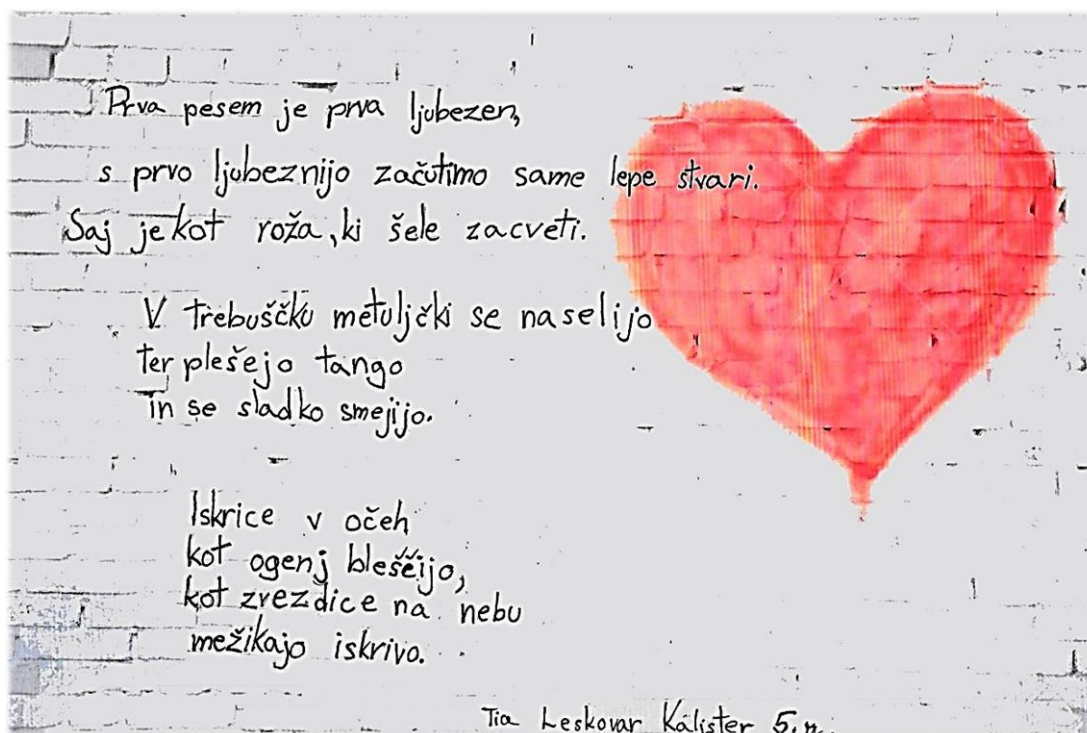 Prva pesem je prva ljubezen,
s prvo ljubeznijo začutimo same lepe stvari.
Saj je kot roža, ki šele zacveti.
V trebuščku metuljčki se naselijo
ter plešejo tango
in se sladko smejijo.
Iskrice v očeh
kot ogenj bleščijo,
kot zvezdice na nebu
mežikajo iskrivo.
Tia Leskovar Kalister 5.